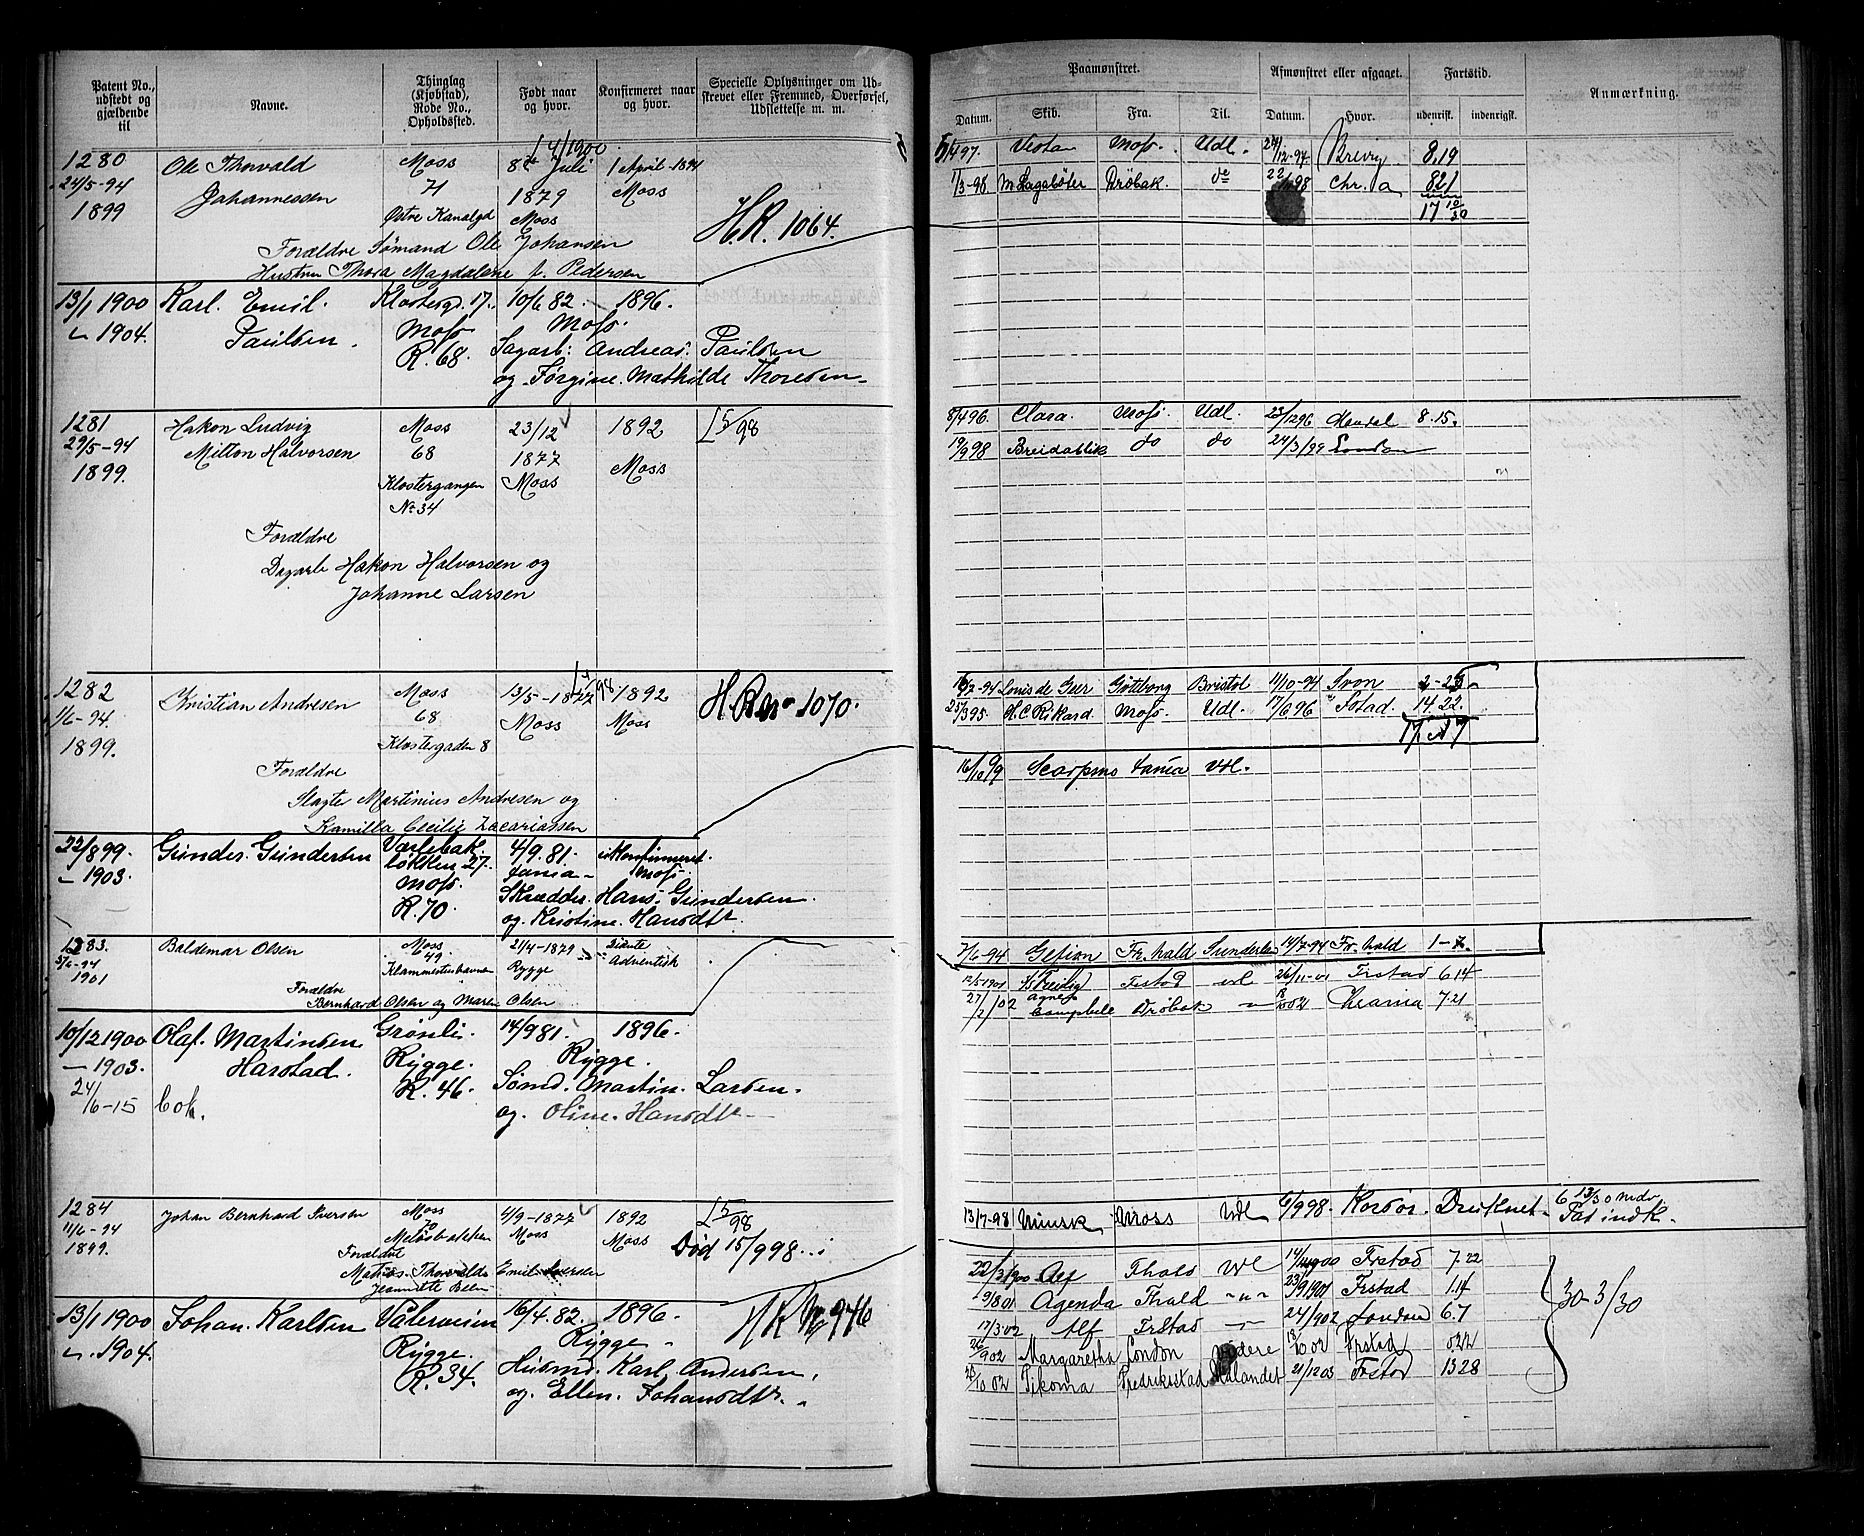 Patent No., udstedt og gjældende til
Navne.
Thinglag (Kjøbstad), Rode No., Opholdssted.
Født naar og hvor.
Konfirmeret naar og hvor.
Specielle Oplysninger om Udskrevet eller Fremmed, Overførsel, Udslettelse m. m.
1280
24/5-94
1899
Ole Thorvald
Johannessen
Moss
71
Østre Kanalgd
8de Juli
1879
Moss
1 April 1894
Moss
H.R. 1064.
Forældre Sømand Ole Johansen
Hustru Thora Magdalene f. Pedersen
13/1 1900
1904.
Karl. Emil.
Paulsen.
Klostergd. 17.
Moss
R. 68.
10/6 82.
1896.
Moss.
Sagarb: Andreas. Paulsen
og Jørgine. Mathilde Thoresen
1281
29/5-94
1899.
Hakon Ludvig
Milton Halvorsen
Moss
68
Klostergangen
No 34
23/12
1877
Moss
1892
Moss
5/98
Forældre
Dagarb Hakon Halvorsen og
Johanne Larsen
1282
1/6-94.
1899.
Kristian Andresen
Moss
68
Klostergaden 8
13/5-1877
Moss
1892
Moss
H.R. No 1070.
Forældre
Slagte Martinius Andresen og
Kamilla Cecilie Zacariassen
22/8 99.
1903.
Gunder. Gundersen
Værlebak.
løkken 27.
Moss.
R. 70.
4/9. 81.
Jania
ukonfirmeret.
Moss.
Skrædder. Hans. Gundersen.
og Kristine. Hansdtr.
1283.
5/6-94
1901
Baldemar Olsen
Moss
49
21/4-1879
Rygge
Adventisk
Forældre
Bernhard Olsen og Maren Olsen
10/12 1900
1903.
24/6-15
Olaf. Martinsen
Harstad.
Grønli.
Rygge.
R. 46.
14/9 81.
1896.
Rygge.
Sømd. Martin. Larsen.
og. Oline. Hansdtr
1284
11/6-94
1899.
Johan Bernhard Iversen
Moss
70
Meløsbakken
4/9-1877
Moss
1892
Moss
5/98
Død 15/9 98.
Forældre
Mathias Thorvald Emil Iversen
Jeanette Been
13/1 1900
1904.
Johan. Karlsen
Vaterveien
Rygge.
R. 34.
16/4. 82.
1896.
Rygge
H R No 946
Husmd. Karl. Andersen.
og. Ellen. Johansdtr.
Paamønstret.
Afmønstret eller afgaaet.
Fartstid.
Anmærkning.
Datum.
Skib.
Fra.
Til.
Datum.
Hvor.
udenrigsk.
indenrigsk.
5/4 97. Vesta Moss. Udl. 24/12-97 Brevig 8.19
1/3-98 M Lagabøter Drøbak. do 22/ 98 Chr.a 821
17 10/30
8/4 96. Clara. Moss. Udl. 23/12 96 Mandal 8.15.
19/9 98 Breidablik do do 24/3/99 London
/7-94 Louis de Geer Gøteborg Bristol 11/10-94 Svon 2-25
25/3 95. H.C Rikard. Moss. Udl. 17/6 96 Fstad. 14.22.
16/10 99 Scorpino Jania Udl.
7/6-94 Gefion Fr.hald Sunderland 14/7-94 Fr.hald 1-7.
12/5 1901 Freidig Frstad udl 26/11-01 Frstad 6.14
27/2/02 Agnes Campbele Drøbak 7.21
13/7-98 Minsk Moss Udl 6/9 98. Korsør. Druknet.
6 13/30 mdr. Fat indk.
22/3 1900 Alf Fhald Udl 14/ 1900 Frstad 7.22
19/8 01 Agenda Fhald 23/9 1901 Frstad 1.4
12/3 02 Alf FrStad 24/ 902 London 6.7
/9 02 Margaretha London Videre 18/10 02 Frstad 0.22
/10 02 Tikoma Fredriksstad Udlandet 21/12 03 Frstad 1328
30-3/30